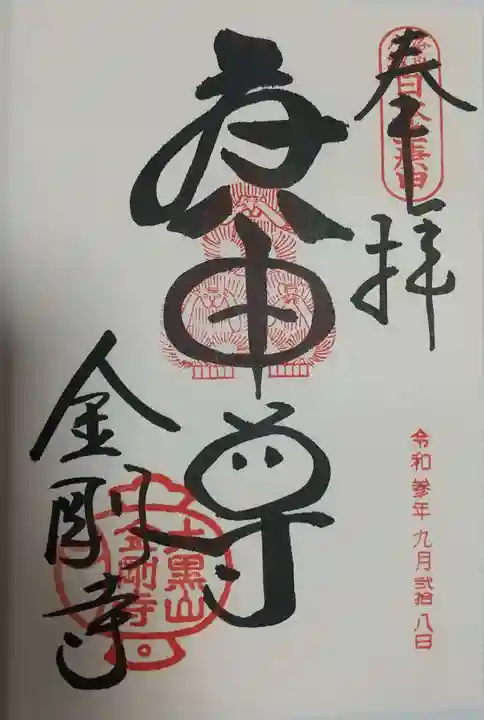 奉拝
庚申尊
金剛寺
大黒山
金剛寺
令和参年九月弐拾八日